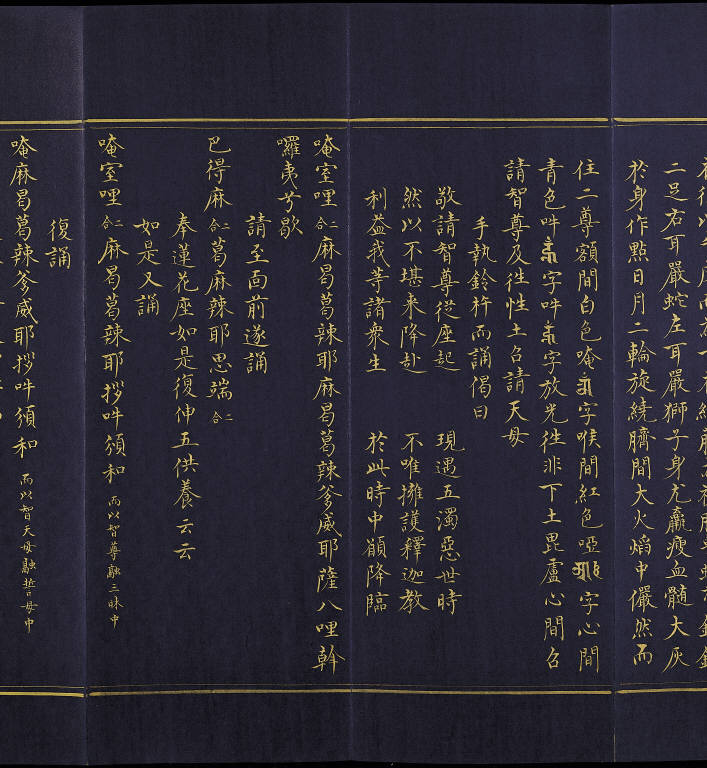 二足右耳嚴蛇左耳嚴獅子身尤羸瘦血髓大灰
於身作點日月二輪旋繞臍間大火焰中儼然而
住二尊額間白色唵字喉間紅色啞字心間
青色吽字吽字放光徃非下土毘盧心間召
請智尊及徃性土召請天母
手執鈴杵而誦偈曰
敬請智尊從座起 現遇五濁惡世時
然以不堪来降赴 不唯擁護釋迦教
利益我等諸衆生 於此時中願降臨
唵室哩二合麻曷葛辣耶麻曷葛辣爹威耶薩八哩斡
囉夷兮歇
請至面前遂誦
巴得麻二合葛麻辣耶思端二合
奉蓮花座如是復伸五供養云云
如是又誦
唵室哩二合麻曷葛辣耶拶吽頒和 而以智尊融三昧中
復誦
唵麻曷葛辣爹威耶拶吽頒和 而以智天母融誓母中